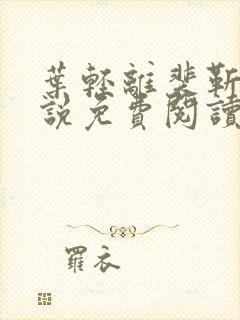 葉輕離裴靳
說免費閱讀
羅衣